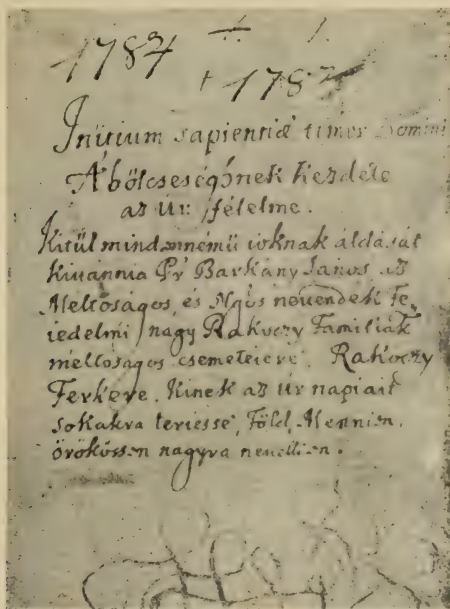 1787
+ 1787
Initium sapientiæ timor Domini
A bölcseségŏnek kezdete
az Úr félelme.
Kitül mindennémü ioknak áldását
kiuánnia Pr Barkány Ianos az
Meltóságos, és Ngos neuendék fe,
iedelmi nagy Rakoczy Familiák
méltóságos csemeteiere. Rakoczy
Ferkere. Kinek az Úr napiait
sokakra teriesse, Föld, Mennien,
örökössen nagyra neuellien.